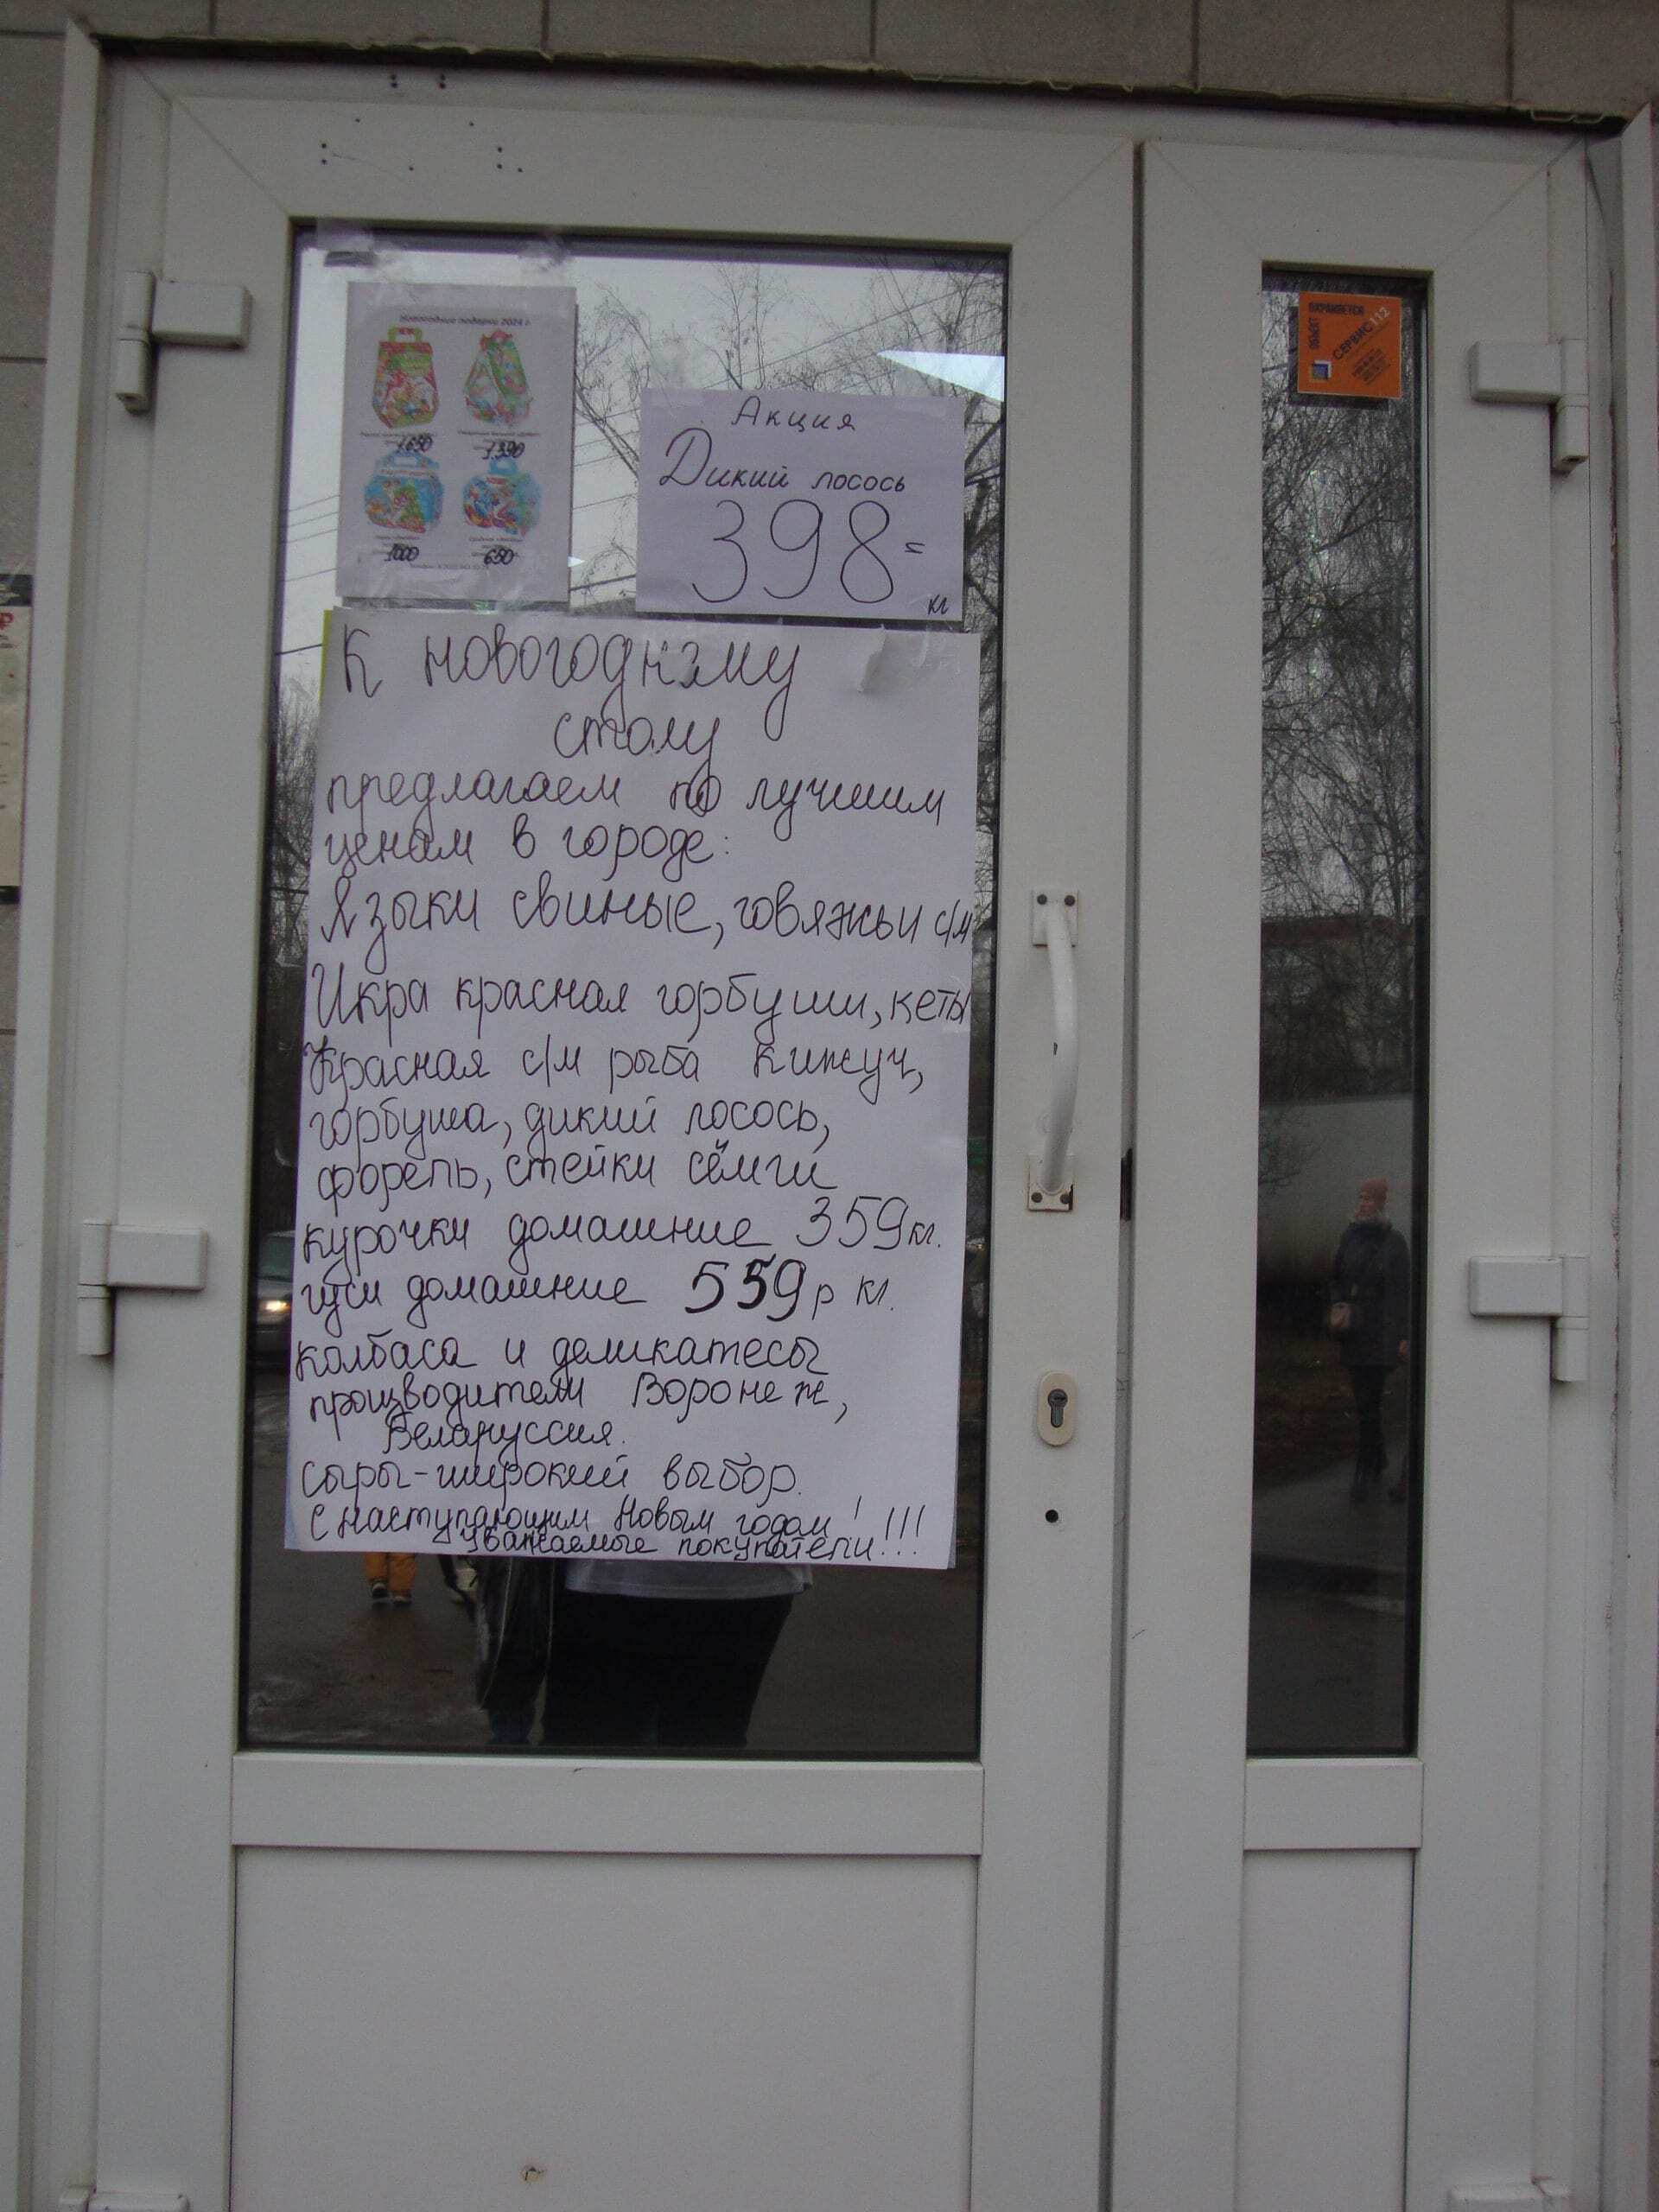 Новогодние подарки 2024 г.
1650
1350
1000
650
Акция
Дикий лосось
398=
кг
К новогоднему
столу
предлагаем по лучшим
ценам в городе:
Языки свиные, говяжьи с/м
Икра красная горбуши, кеты
Красная с/м рыба кижуч,
горбуша, дикий лосось,
форель, стейки сёмги
курочки домашние 359кг.
гуси домашние 559р кг.
колбаса и деликатесы
производители Воронеж,
Веларуссия.
сыры-широкий выбор.
С наступающим Новым годом! !!!
Уважаемые покупатели!!!
ОБЪЕКТ
ОХРАНЯЕТСЯ
СЕРВИС 112